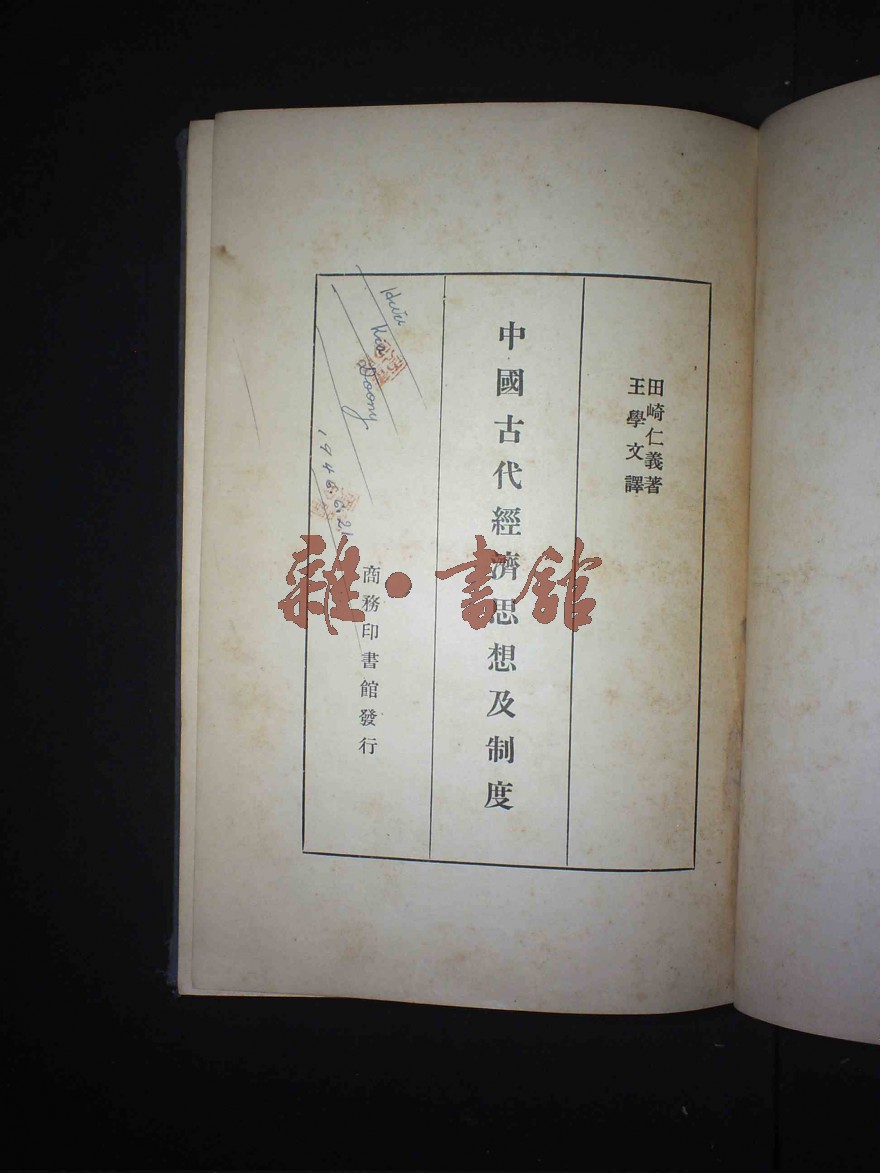 田崎仁義著
王學文譯
中國古代經濟思想及制度
商務印書館發行
雜·書館